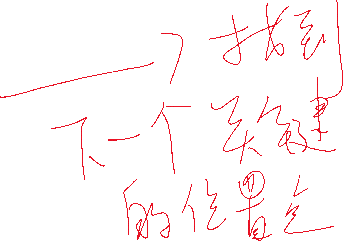 找到
下一个关键
的位置